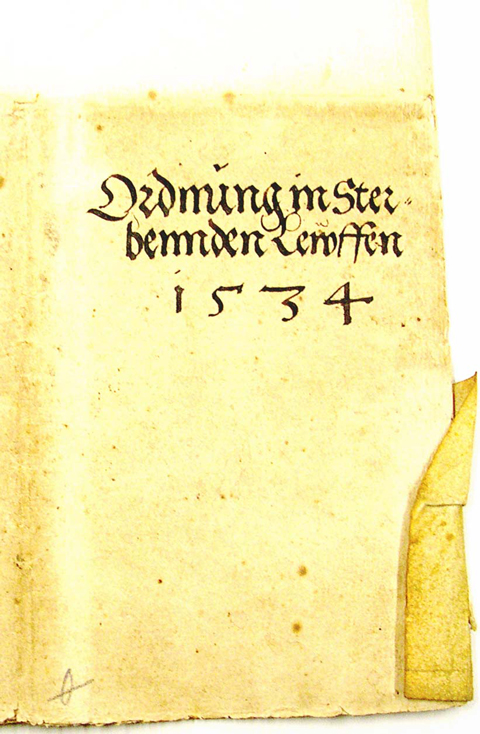 Ordnŭng in Ster-
bennden Lewffen
1534